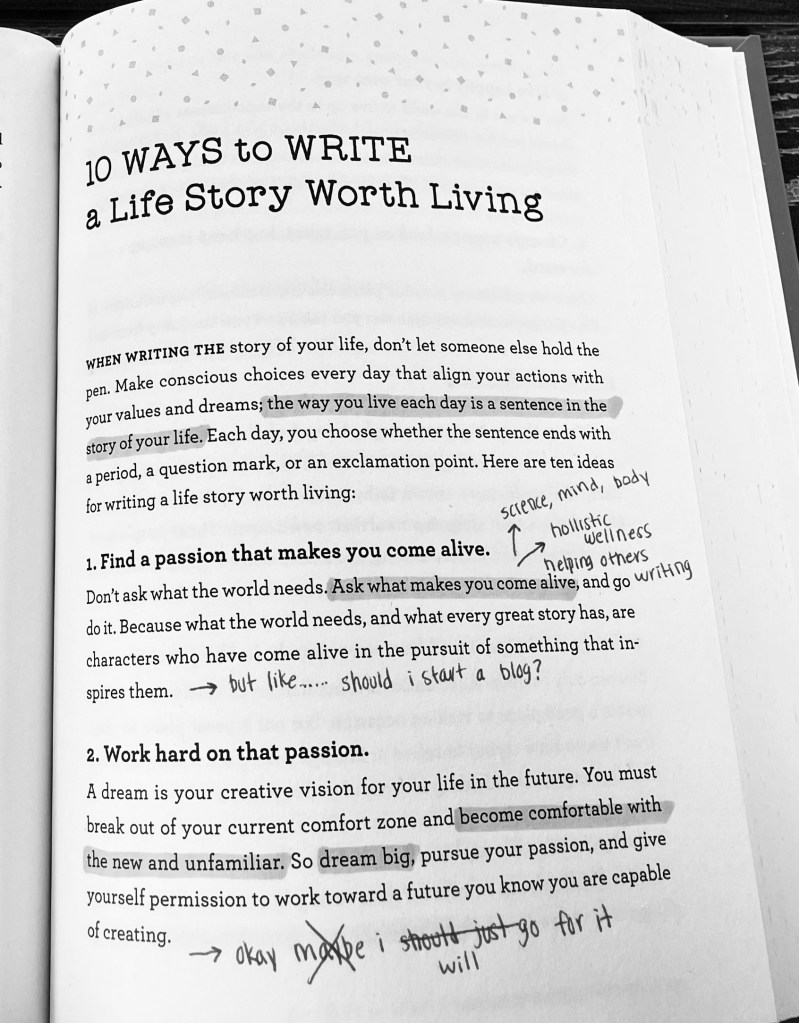 10 WAYS to WRITE
a Life Story Worth Living
WHEN WRITING THE story of your life, don't let someone else hold the
pen. Make conscious choices every day that align your actions with
your values and dreams; the way you live each day is a sentence in the
story of your life. Each day, you choose whether the sentence ends with
a period, a question mark, or an exclamation point. Here are ten ideas
for writing a life story worth living:
science, mind, body
hollistic
wellness
helping others
writing
1. Find a passion that makes you come alive.
Don't ask what the world needs. Ask what makes you come alive, and go
do it. Because what the world needs, and what every great story has, are
characters who have come alive in the pursuit of something that in-
spires them. → but like..... should i start a blog?
2. Work hard on that passion.
A dream is your creative vision for your life in the future. You must
break out of your current comfort zone and become comfortable with
the new and unfamiliar. So dream big, pursue your passion, and give
yourself permission to work toward a future you know you are capable
of creating.
→ okay maybe i should just go for it
will